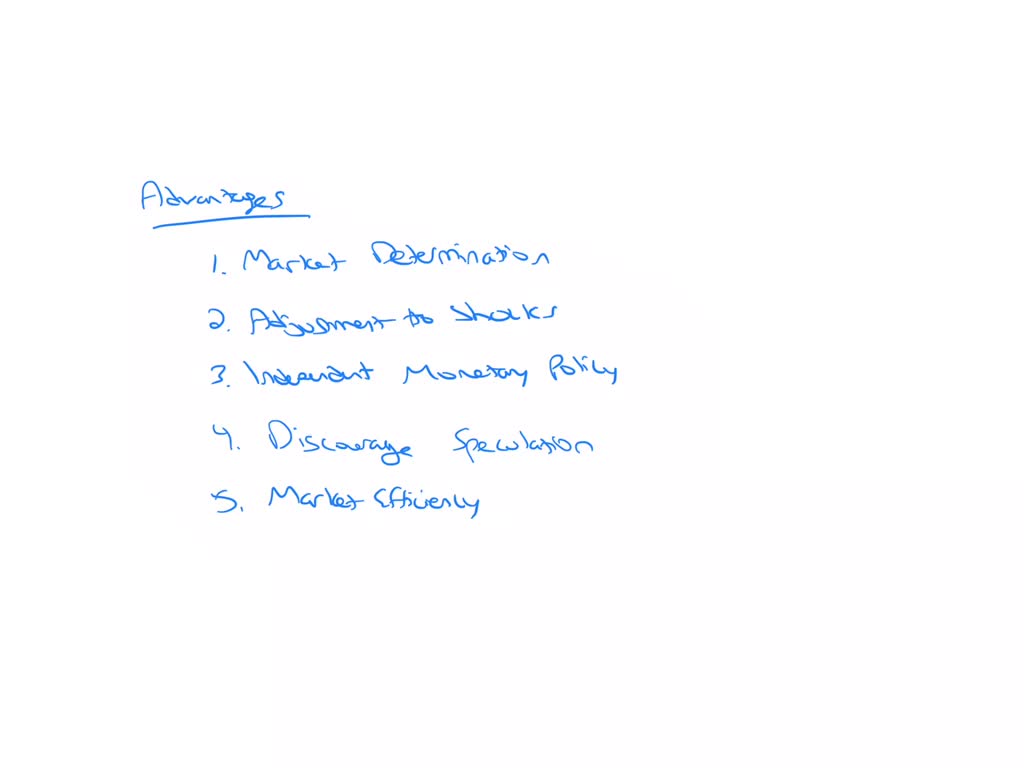 Advantages
1. Market Determination
2. Adjusment to Shocks
3. Independent Monetary Policy
4. Discourage Speculation
5. Market Efficiency